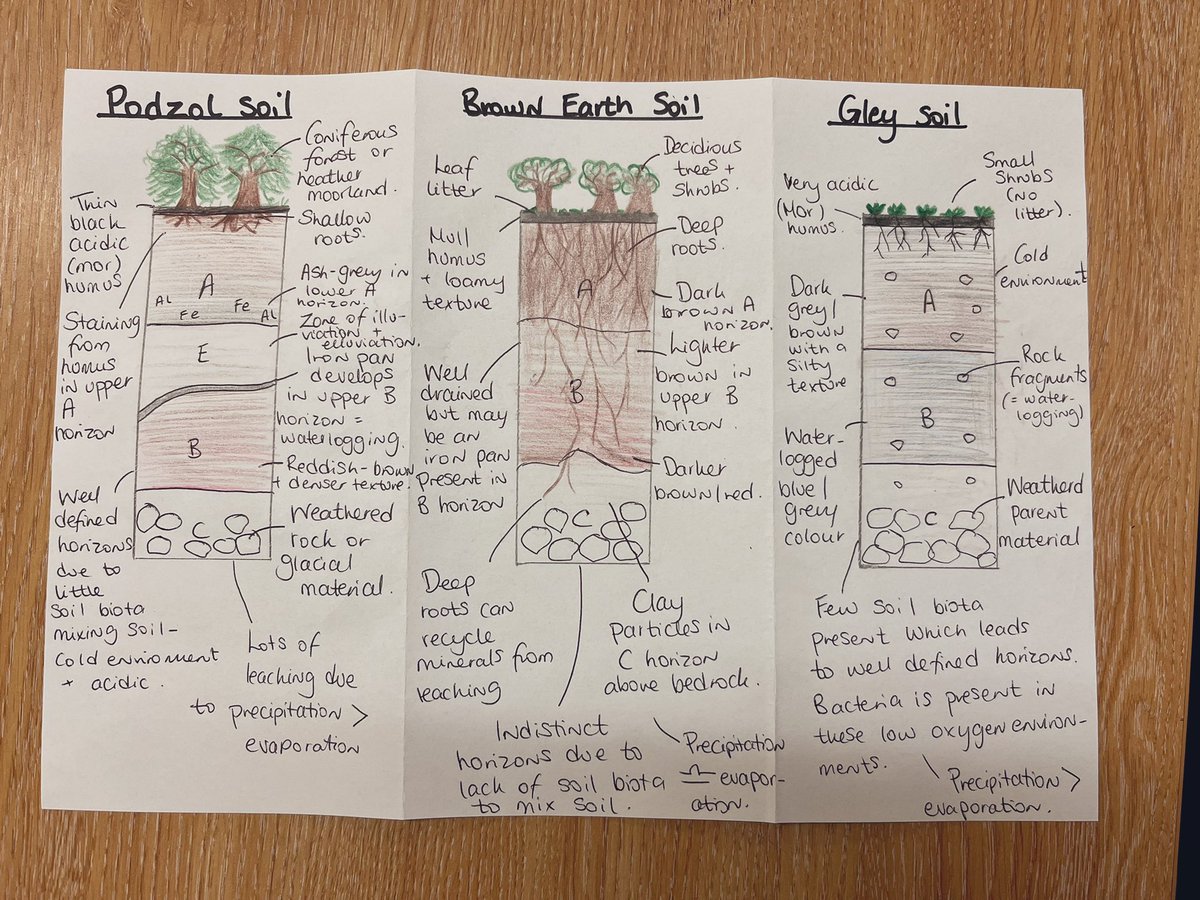 Podzol Soil
Coniferous
forest or
heather
moorland.
Thin
black
acidic
(mor)
humus
Shallow
roots.
A
Al
Fe
Fe
Al
Ash-grey in
lower A
horizon.
Staining
from
humus
in upper
A
horizon
Zone of illu-
viation +
elluviation.
E
Iron pan
develops
in upper B
horizon =
waterlogging.
B
Reddish-brown
+ denser texture.
Well
defined
horizons
due to
little
soil biota
mixing soil-
cold enviroment
+ acidic.
C
Weathered
rock or
glacial
material.
Lots of
leaching due
to precipitation >
evaporation
Brown Earth Soil
Leaf
litter
Decidious
trees +
Shrubs.
Mull
humus
+ loamy
texture
Deep
roots.
A
Dark
brown A
horizon.
Well
drained
but may
be an
iron pan
present in
B horizon
B
Lighter
brown in
upper B
horizon.
Darker
brown/red.
C
Deep
roots can
recycle
minerals from
leaching
Clay
particles in
C horizon
above bedrock.
Indistinct
horizons due to
lack of soil biota
to mix soil.
Precipitation
evapor-
ation.
Gley Soil
Very acidic
(Mor)
humus.
Small
Shrubs
(No
litter).
Cold
environment
Dark
grey/
brown
with a
silty
texture
A
Rock
fragments
(= water-
logging)
B
Water-
logged
blue/
grey
colour
C
Weatherd
parent
material
Few soil biota
present which leads
to well defined horizons.
Bacteria is present in
these low oxygen environ-
ments.
Precipitation >
evaporation.